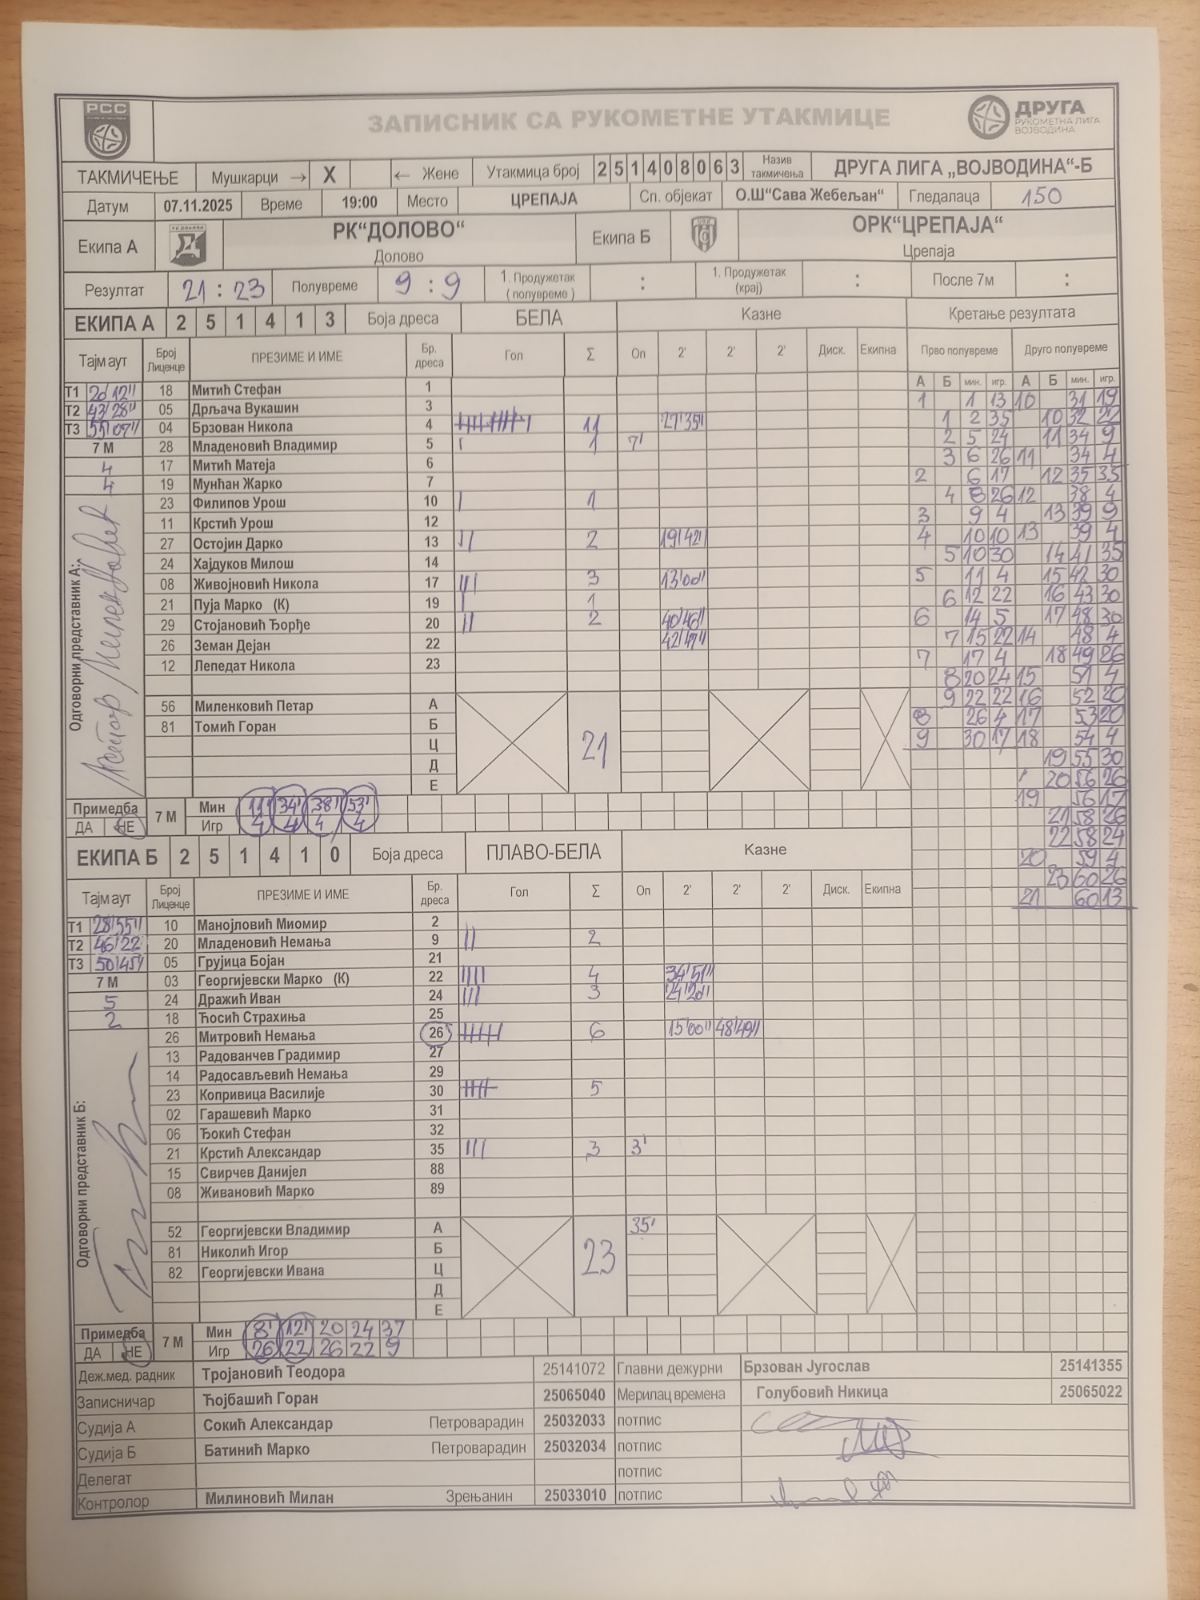 РСС
ЗАПИСНИК СА РУКОМЕТНЕ УТАКМИЦЕ
ДРУГА
РУКОМЕТНА ЛИГА
ВОЈВОДИНА
ТАКМИЧЕЊЕ Мушкарци → X ← Жене Утакмица број 2 5 1 4 0 8 0 6 3 Назив такмичења ДРУГА ЛИГА „ВОЈВОДИНА“-Б
Датум 07.11.2025 Време 19:00 Место ЦРЕПАЈА Сп. објекат О.Ш“Сава Жебељан“ Гледалаца 150
Екипа А РК“ДОЛОВО“ Долово Екипа Б ОРК“ЦРЕПАЈА“ Црепаја
Резултат 21 : 23 Полувреме 9 : 9 1. Продужетак (полувреме) : 1. Продужетак (крај) : После 7м :
ЕКИПА А 2 5 1 4 1 3 Боја дреса БЕЛА Казне Кретање резултата
Тајм аут Број Лиценце ПРЕЗИМЕ И ИМЕ Бр. дреса Гол Σ Оп 2' 2' 2' Диск. Екипна Прво полувреме Друго полувреме
А Б мин. игр. А Б мин. игр.
Т1 20'12'' 18 Митић Стефан 1
Т2 43'28'' 05 Дрљача Вукашин 3
Т3 55'07'' 04 Брзован Никола 4 11 27'35''
7 М 28 Младеновић Владимир 5 1 7'
4 17 Митић Матеја 6
4 19 Мунћан Жарко 7
23 Филипов Урош 10 1
11 Крстић Урош 12
27 Остојин Дарко 13 2 19'42''
24 Хајдуков Милош 14
08 Живојновић Никола 17 3 13'00''
21 Пуја Марко (К) 19 1
29 Стојановић Ђорђе 20 2 40'46''
26 Земан Дејан 22 42'47''
12 Лепедат Никола 23
Одговорни представник А:
56 Миленковић Петар А
81 Томић Горан Б
Ц
Д
Е
21
1 1 13 10 31 19
1 2 35 10 32 22
2 5 24 11 34 9
3 6 26 11 34 4
2 6 17 12 35 35
4 8 26 12 38 4
3 9 4 13 39 9
4 10 10 13 39 4
5 10 30 14 41 35
5 11 4 15 42 30
6 12 22 16 43 30
6 14 5 17 48 30
7 15 22 14 48 4
7 17 4 18 49 26
8 20 24 15 51 4
9 22 22 16 52 20
8 26 4 17 53 20
9 30 17 18 54 4
19 55 30
20 56 26
19 56 17
21 58 26
22 58 24
20 59 4
23 60 26
21 60 13
Примедба ДА НЕ 7 М Мин 11' 34' 38' 53'
Игр 4 4 4 4
ЕКИПА Б 2 5 1 4 1 0 Боја дреса ПЛАВО-БЕЛА Казне
Тајм аут Број Лиценце ПРЕЗИМЕ И ИМЕ Бр. дреса Гол Σ Оп 2' 2' 2' Диск. Екипна
Т1 28'55'' 10 Манојловић Миомир 2
Т2 46'22 20 Младеновић Немања 9 2
Т3 50'45'' 05 Грујица Бојан 21
7 М 03 Георгијевски Марко (К) 22 4 34'51''
5 24 Дражић Иван 24 3 24'20''
2 18 Ћосић Страхиња 25
26 Митровић Немања 26 6 15'00'' 48'49''
13 Радованчев Градимир 27
14 Радосављевић Немања 29
23 Копривица Василије 30 5
02 Гарашевић Марко 31
06 Ђокић Стефан 32
21 Крстић Александар 35 3 3'
15 Свирчев Данијел 88
08 Живановић Марко 89
Одговорни представник Б:
52 Георгијевски Владимир А 35'
81 Николић Игор Б
82 Георгијевски Ивана Ц
Д
Е
23
Примедба ДА НЕ 7 М Мин 8' 12' 20 24 37
Игр 26 22 26 22 9
Деж.мед. радник Тројановић Теодора 25141072 Главни дежурни Брзован Југослав 25141355
Записничар Ћојбашић Горан 25065040 Мерилац времена Голубовић Никица 25065022
Судија А Сокић Александар Петроварадин 25032033 потпис
Судија Б Батинић Марко Петроварадин 25032034 потпис
Делегат потпис
Контролор Милиновић Милан Зрењанин 25033010 потпис